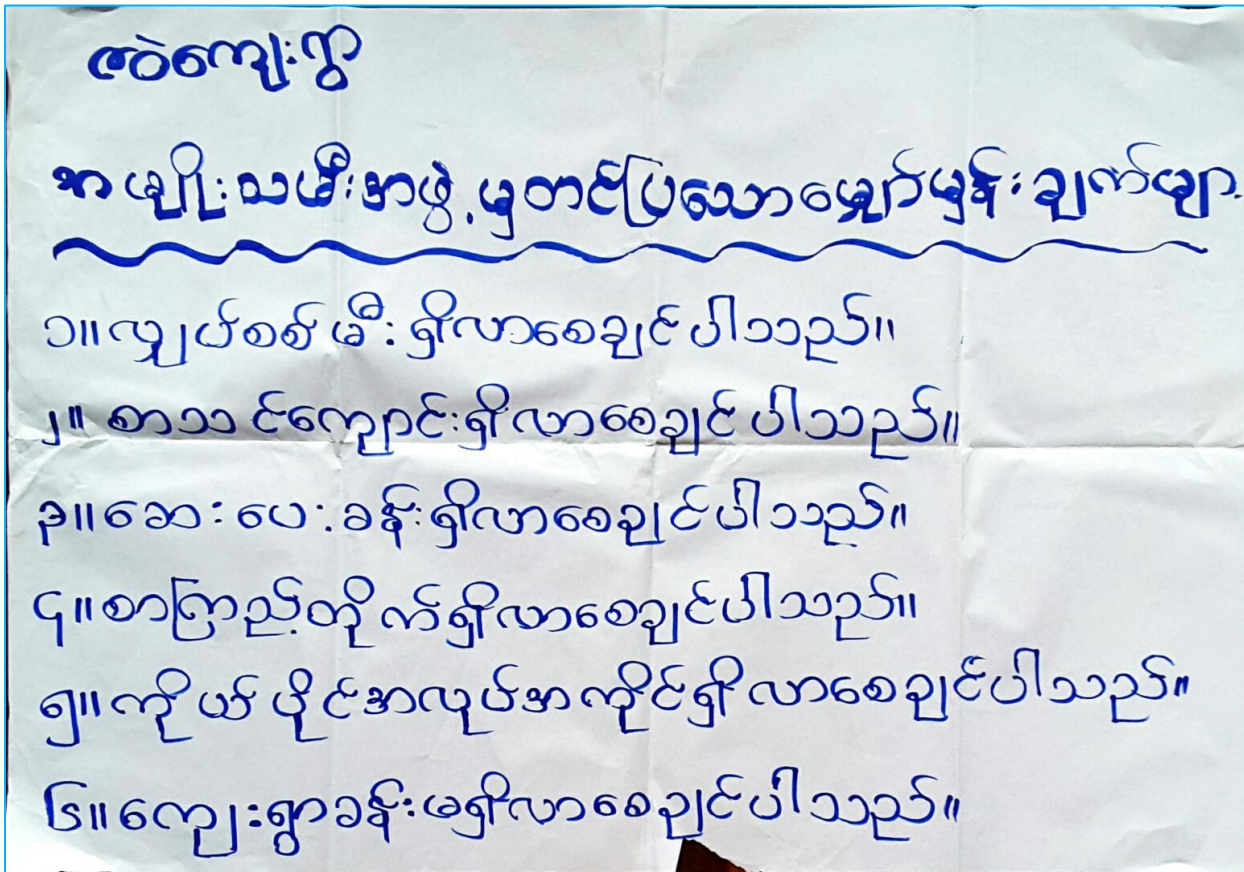 ဇဝဲကျေးရွာ
အမျိုးသမီးအဖွဲ့မှတင်ပြသောမျှော်မှန်းချက်များ
၁။လျှပ်စစ်မီးရှိလာစေချင်ပါသည်။
၂။စာသင်ကျောင်းရှိလာစေချင်ပါသည်။
၃။ဆေးပေးခန်းရှိလာစေချင်ပါသည်။
၄။စာကြည့်တိုက်ရှိလာစေချင်ပါသည်။
၅။ကိုယ်ပိုင်အလုပ်အကိုင်ရှိလာစေချင်ပါသည်။
၆။ကျေးရွာခန်းမရှိလာစေချင်ပါသည်။